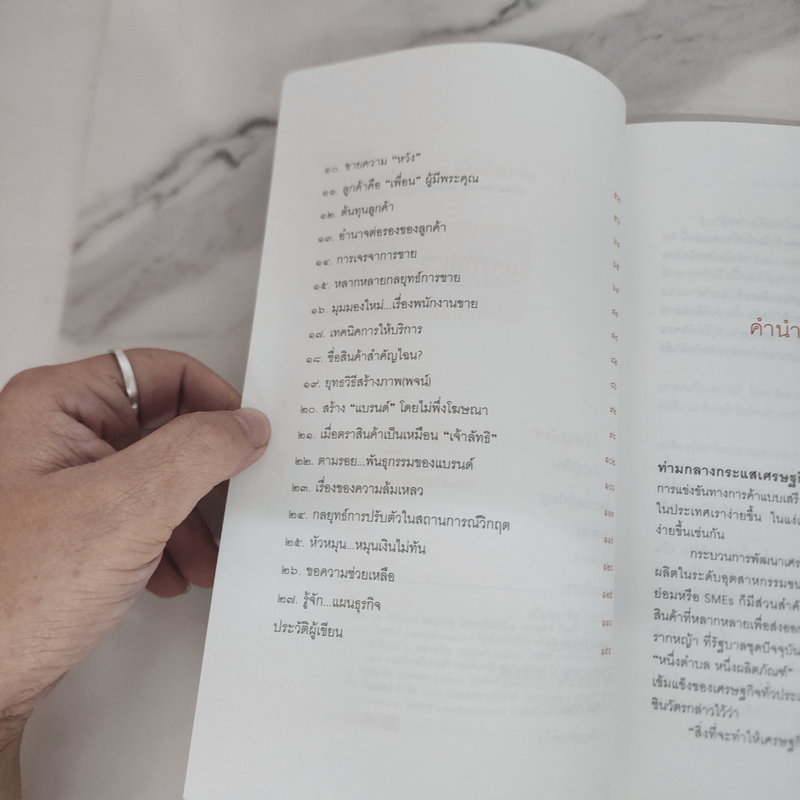 ๑๐. ขายความ "หวัง"
๑๑. ลูกค้าคือ "เพื่อน" ผู้มีพระคุณ
๑๒. ต้นทุนลูกค้า
๑๓. อำนาจต่อรองของลูกค้า
๑๔. การเจรจาการขาย
๑๕. หลากหลายกลยุทธ์การขาย
๑๖. มุมมองใหม่...เรื่องพนักงานขาย
๑๗. เทคนิคการให้บริการ
๑๘. ชื่อสินค้าสำคัญไฉน?
๑๙. ยุทธวิธีสร้างภาพ(พจน์)
๒๐. สร้าง "แบรนด์" โดยไม่พึ่งโฆษณา
๒๑. เมื่อตราสินค้าเป็นเหมือน "เจ้าลัทธิ"
๒๒. ตามรอย...พันธุกรรมของแบรนด์
๒๓. เรื่องของความล้มเหลว
๒๔. กลยุทธ์การปรับตัวในสถานการณ์วิกฤต
๒๕. หัวหมุน...หมุนเงินไม่ทัน
๒๖. ขอความช่วยเหลือ
๒๗. รู้จัก...แผนธุรกิจ
ประวัติผู้เขียน
คำนำ
ท่ามกลางกระแสเศรษฐกิ
การแข่งขันทางการค้าแบบเสรี
ในประเทศเราง่ายขึ้น ในแง่
ง่ายขึ้นเช่นกัน
กระบวนการพัฒนาเศร
ผลิตในระดับอุตสาหกรรมขน
ย่อมหรือ SMEs ก็มีส่วนสำคั
สินค้าที่หลากหลายเพื่อส่งออก
รากหญ้า ที่รัฐบาลชุดปัจจุบัน
"หนึ่งตำบล หนึ่งผลิตภัณฑ์"
เข้มแข็งของเศรษฐกิจทั่วประเ
ชินวัตรกล่าวไว้ว่า
"สิ่งที่จะทำให้เศรษฐกิ